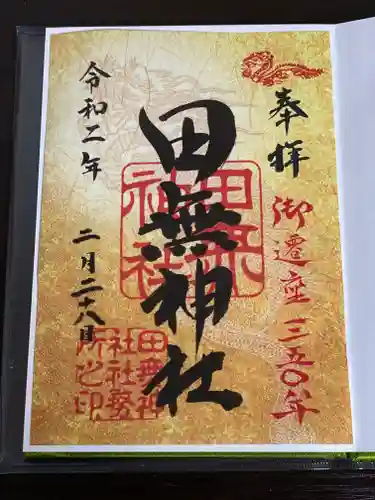 奉拝
御遷座三五〇年
田無神社
田無神社
田無神社社務所之印
令和二年
二月二十八日